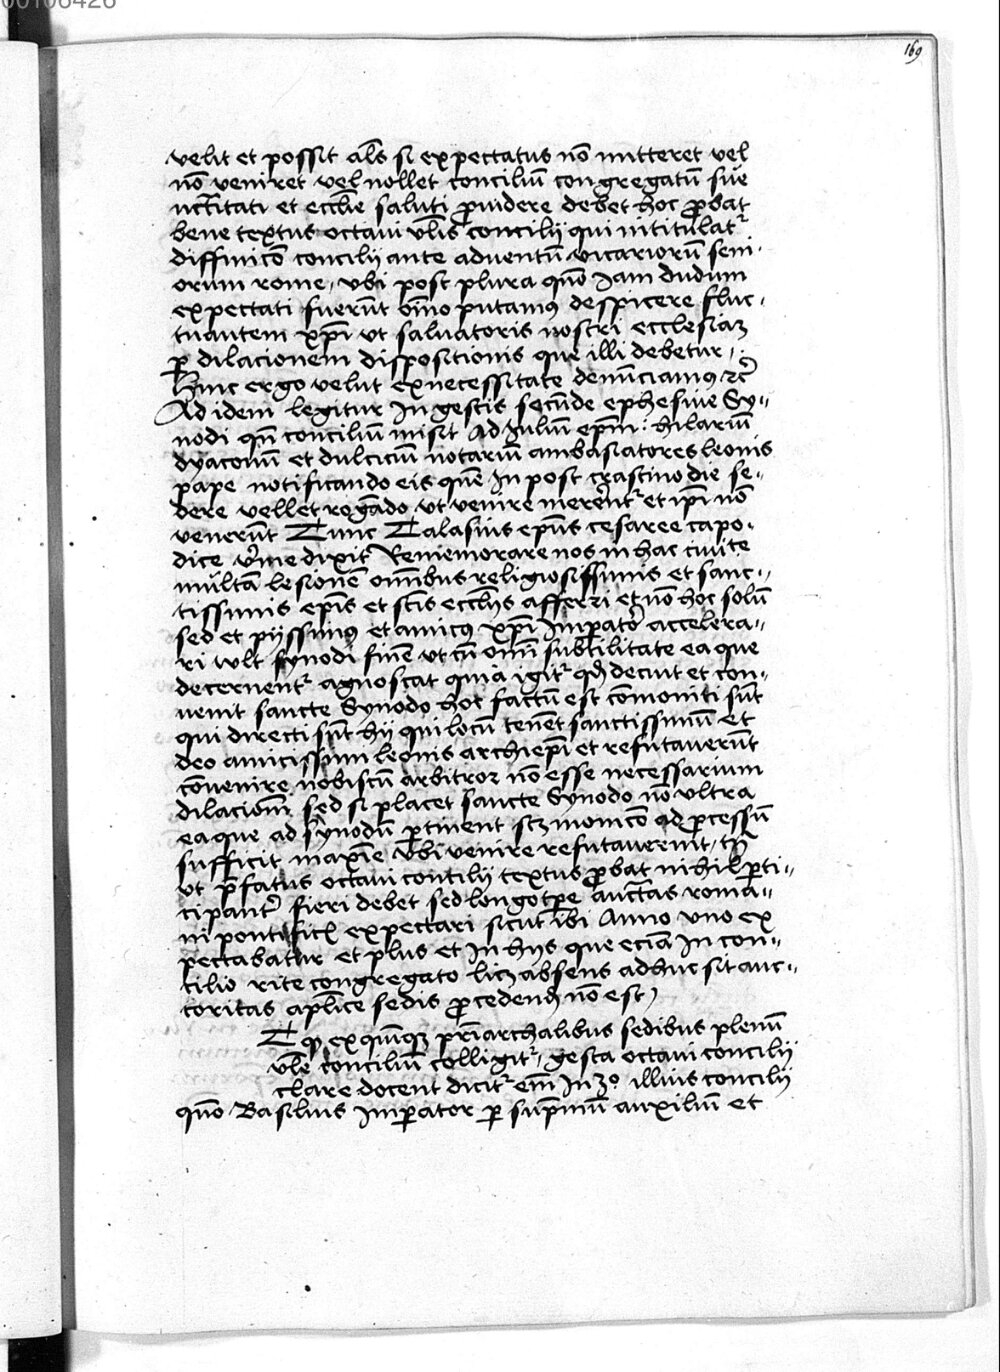 00106426
169
velit et possit als si expectatus nō mitteret vel
nō veniret vel nollet conciliū congregatū sue
uctītati et ecclīe saluti ꝓuidere debet hoc ꝓbat
bene textus octaui vlīs concilij qui intitulatr
diffinicō concilij ante aduentū vicariorū seni-
orum rome, vbi post plura quō Iam dudum
expectati fuerūt oīno putamus despicere fluc-
tuantem xp̄i ut saluatoris nostri ecclesiaꝫ
ꝑ dilacionem dispositionis que illi debetur,
Hinc ergo velut ex necessitate denūciamus ꝛc̄
Ad idem legitur In gestis secūde ephesine Sy-
nodi qn̄ concilium misit Ad Iuliū epm̄ : hilariū
dyaconū et dulciciū notariū ambasiatores leonis
pape notificando eis quē In post crastino die se-
dere vellet rogādo ut venire merēntr et ip̄i nō
venerūt Tunc Talasius epūs cesaree capo-
dice dixit Rememorare nos in hac ciuite
multā lesionē omībus religiosissimis et sanc-
tissimis epīs et sc̄is ecclīijs afferri et nō hoc solū
sed et pijssimus et amicus xp̄i Imꝑator accelera-
ri vult synodi finē ut cū omī subtilitate ea que
decernentr agnoscat quia igitr qd̄ decuit et con-
uenit sancte Synodo hoc factū est cōmoniti sūt
qui directi sūt hij qui locū tenēt sanctissimū et
deo amicissimi leonis archiepī et refutauerūt
cōuenire nobiscū arbitror nō esse necessarium
dilacionē sed si placet sancte Synodo nō vltra
ea que ad synodū ꝑtinent scꝫ monicō ad ꝓcessū
sufficit maxīe vbi venire refutauerint, tn̄
ut p̄fatus octaui concilij textus ꝓbat nihil ꝑti-
cipantr fieri debet sed longo tꝑe auctas romā-
ni pontific̄ expectari sicut ibi Anno vno ex
pectabatur et plus et In hijs que eciā In con-
cilio rite congregato licꝫ absens adhuc sit auc-
toritas ap̄lice sedis ꝓcedend̄ nō est,
ex quīqꝫ pr̄iarchalibus sedibus plenū
vlē conciliū colligitr, gesta octaui concilij
clare docent dicitr em̄ In 3o. illius concilij
quō Basilius Imꝑator ꝑ sup̄mū auxiliū et